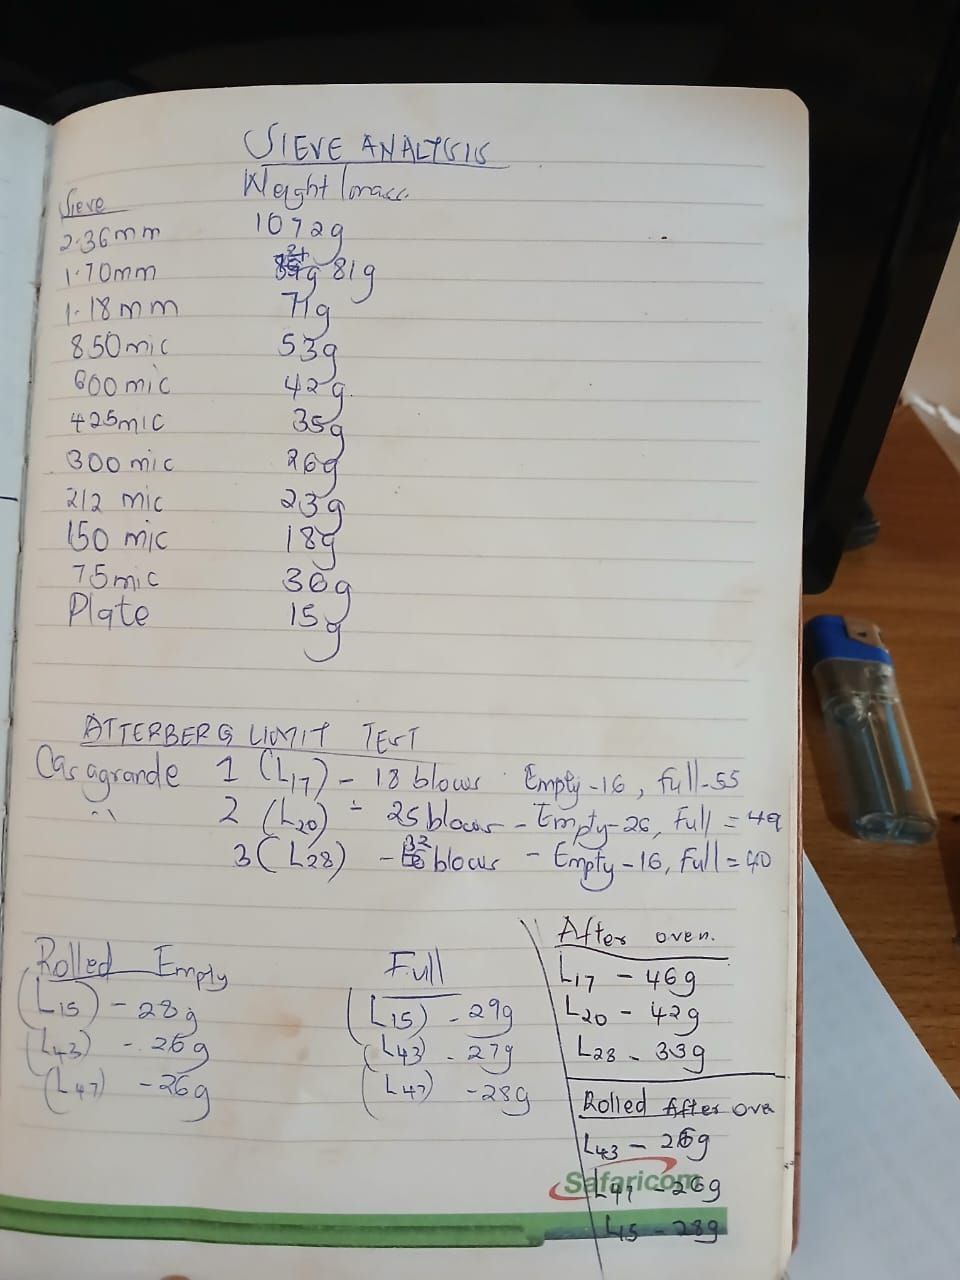 SIEVE ANALYSIS
Sieve Weight (mass.
2.36mm 1072g
1.70mm 81g
1.18mm 71g
850mic 53g
600mic 42g.
425mic 35g
300mic 26g
212 mic 23g
150 mic 18g
75mic 36g
Plate 15g
ATTERBERG LIMIT TEST
Casagrande 1 (L17) - 18 blows Empty -16, full-55
" 2 (L20) - 25 blows - Empty-26, Full = 49
3 (L28) - 32 blows - Empty -16, Full = 40
Rolled Empty Full
(L15) - 28g (L15) - 29g
(L43) - 26g (L43) - 27g
(L47) - 26g (L47) - 28g
After oven.
L17 - 46g
L20 - 42g
L28 - 33g
Rolled After ove
L43 - 26g
L47 - 26g
L15 - 28g
Safaricom